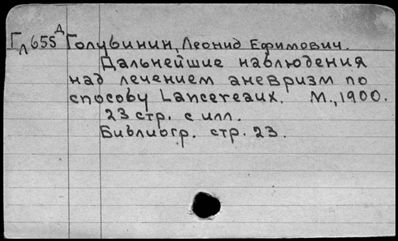 Гл 655 Д Голубинин, Леонид Ефимович.
Дальнейшие наблюдения
над лечением аневризм по
способу Lancereaux. М., 1900.
23 стр. с илл.
Библиогр. стр. 23.